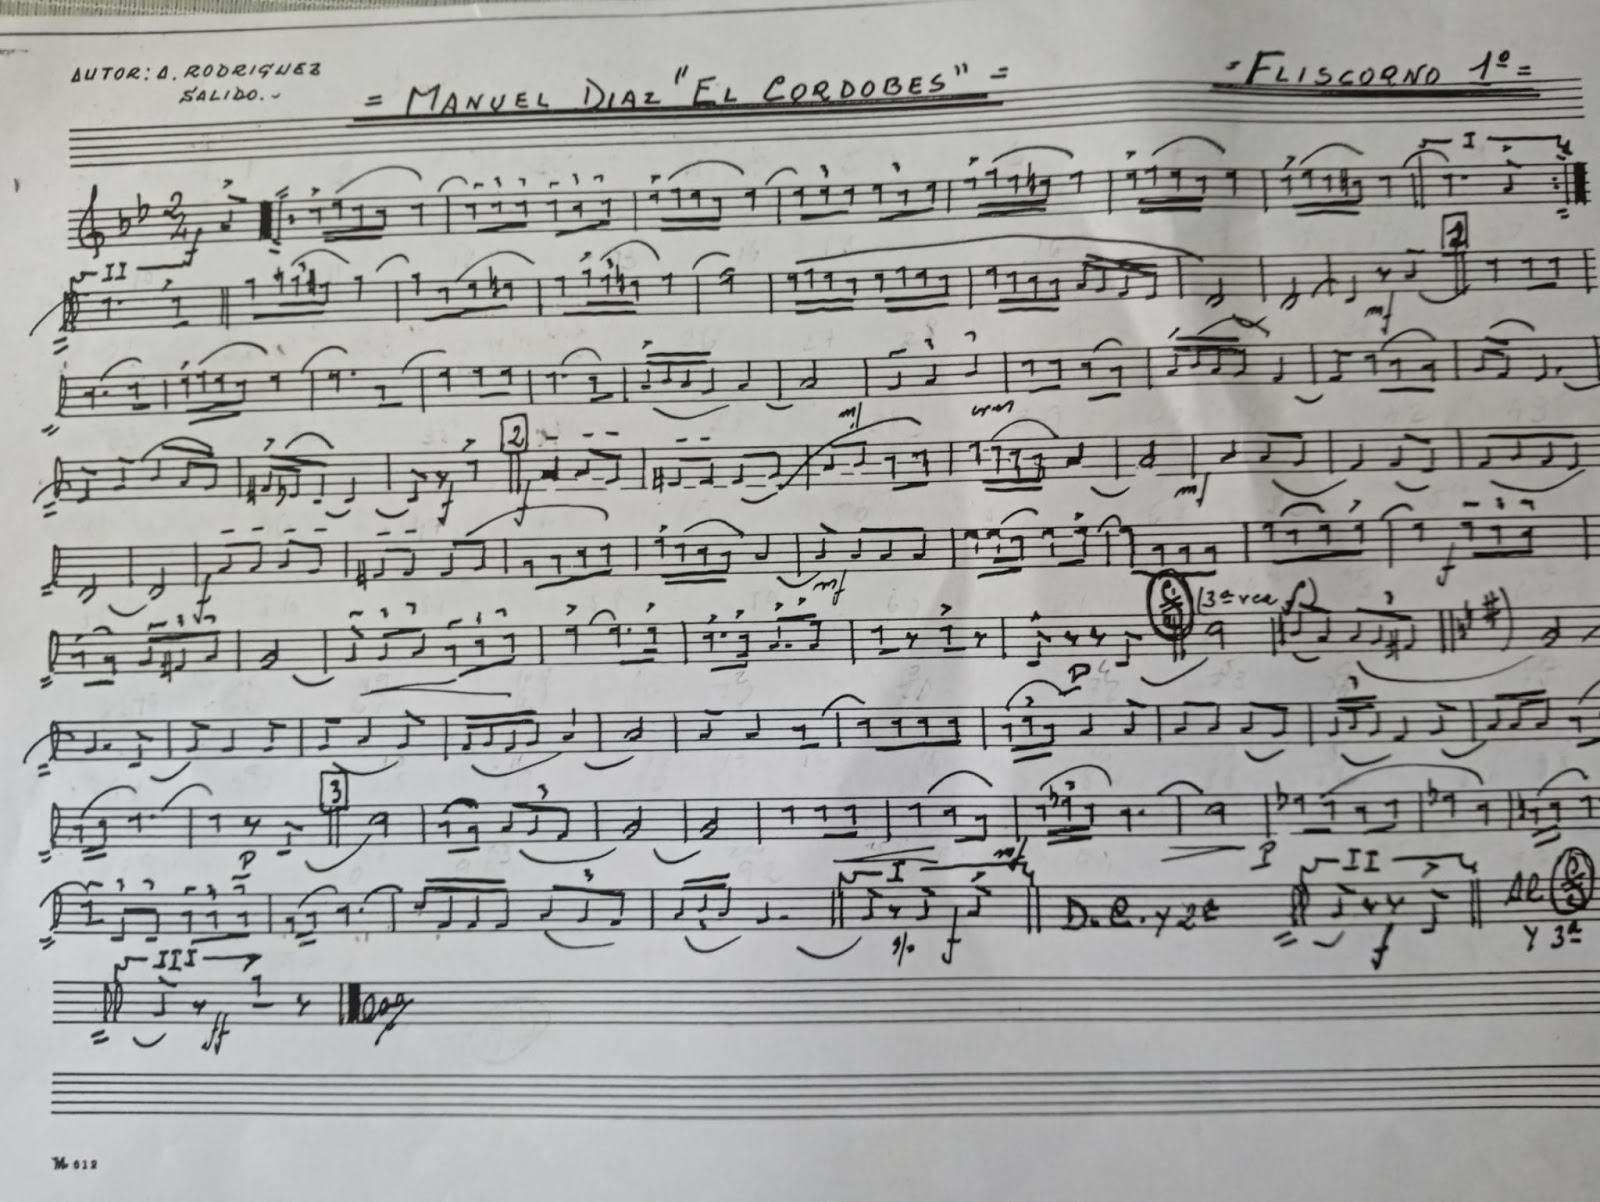 AUTOR: A. RODRIGUEZ
SALIDO.-
= MANUEL DIAZ "EL CORDOBES" =
= FLISCORNO 1º =
I
2
4
f
II
1
mf
3
2
mf
f
mf
f
mf
f
(3ª vez f)
3
P
3
3
3
3
P
mf
P
I
II
3
3
D.C. y 2ª
Al
f
f
y 3ª
III
ff
M. 612